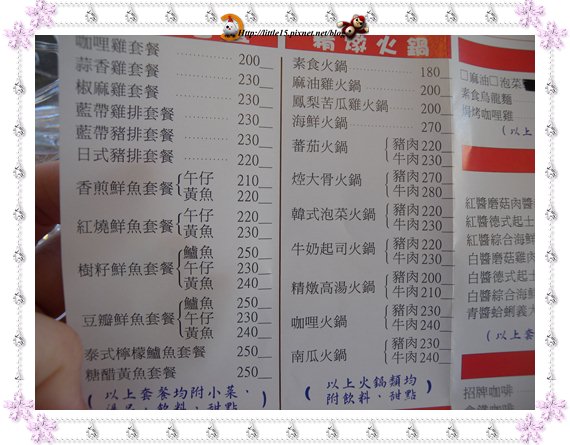 Http://little15.pixnet.net/blog
咖哩雞套餐 200
蒜香雞套餐 230
椒麻雞套餐 230
藍帶雞排套餐 230
藍帶豬排套餐 230
日式豬排套餐 220
香煎鮮魚套餐 午仔 210
黃魚 220
紅燒鮮魚套餐 午仔 220
黃魚 230
樹籽鮮魚套餐 鱸魚 250
午仔 230
黃魚 240
豆瓣鮮魚套餐 鱸魚 250
午仔 230
黃魚 240
泰式檸檬鱸魚套餐 250
糖醋黃魚套餐 250
(以上套餐均附小菜、
飲料、甜點
精燉火鍋
素食火鍋 180
麻油雞火鍋 200
鳳梨苦瓜雞火鍋 200
海鮮火鍋 270
蕃茄火鍋 豬肉 220
牛肉 230
焢大骨火鍋 豬肉 270
牛肉 280
韓式泡菜火鍋 豬肉 220
牛肉 230
牛奶起司火鍋 豬肉 220
牛肉 230
精燉高湯火鍋 豬肉 200
牛肉 210
咖哩火鍋 豬肉 230
牛肉 240
南瓜火鍋 豬肉 230
牛肉 240
(以上火鍋類均
附飲料、甜點)
□麻油□泡菜
素食烏龍麵
焗烤咖哩雞
(以上
紅醬蘑菇肉醬
紅醬德式起士
紅醬綜合海鮮
白醬蘑菇雞肉
白醬德式起士
白醬綜合海鮮
青醬蛤蜊義大
(以上
招牌咖啡